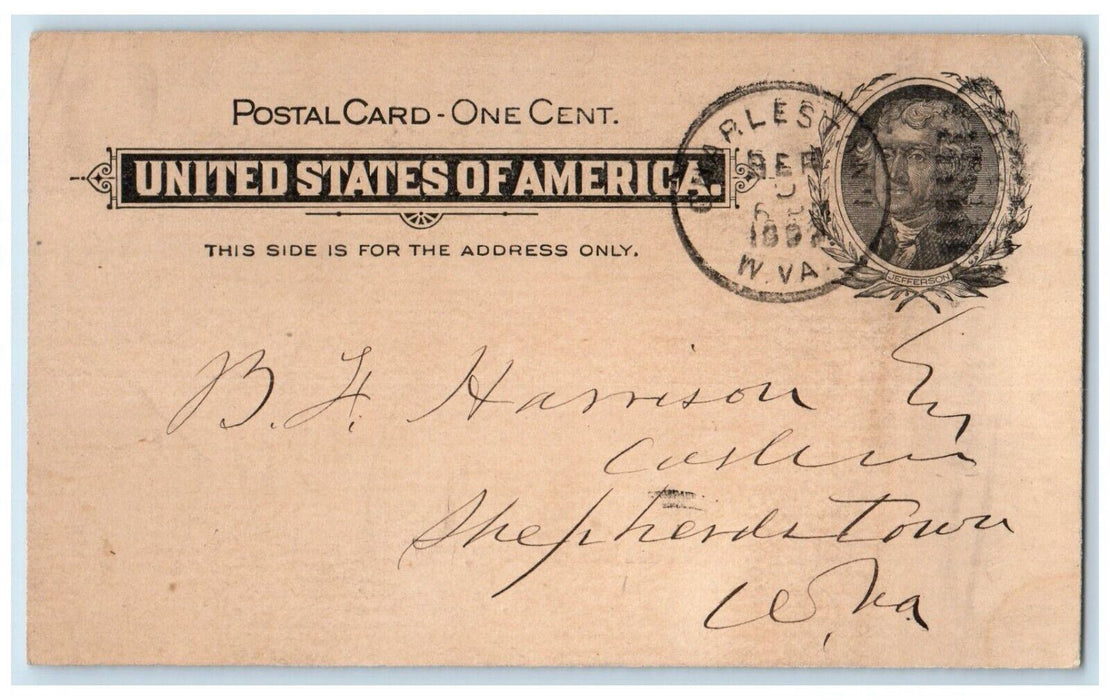 POSTAL CARD - ONE CENT.
UNITED STATES OF AMERICA.
THIS SIDE IS FOR THE ADDRESS ONLY.
SEP
W. VA.
JEFFERSON
B. F. Harrison Esq
Cashier
Shepherdstown
W. Va